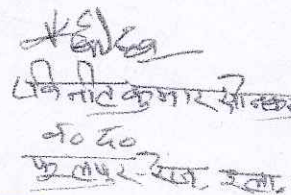 विनीत कुमार सोनकर
व० द०
फूलपुर रेंज इला.